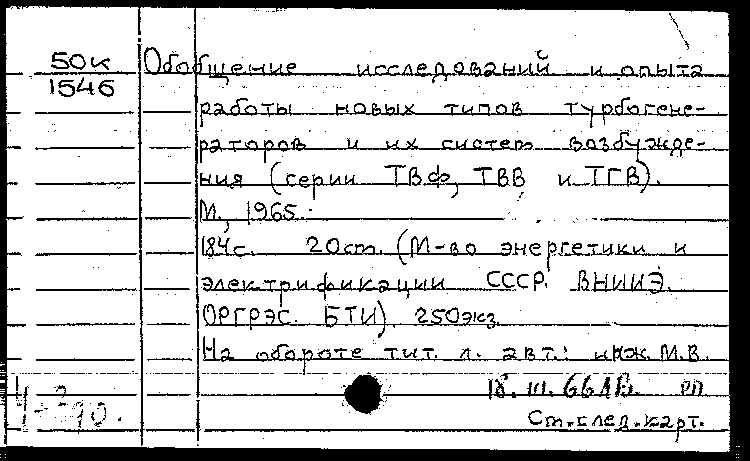 50к
1546
Обобщение исследований и опыта
работы новых типов турбогене-
раторов и их систем возбужде-
ния (серии ТВФ, ТВВ и ТГВ).
М., 1965.
184с. 20см. (М-во энергетики и
электрификации СССР. ВНИИЭ.
ОРГРЭС. БТИ). 250экз.
На обороте тит. л. авт.: инж. М.В.
18.III.66 рп
См.след.карт.